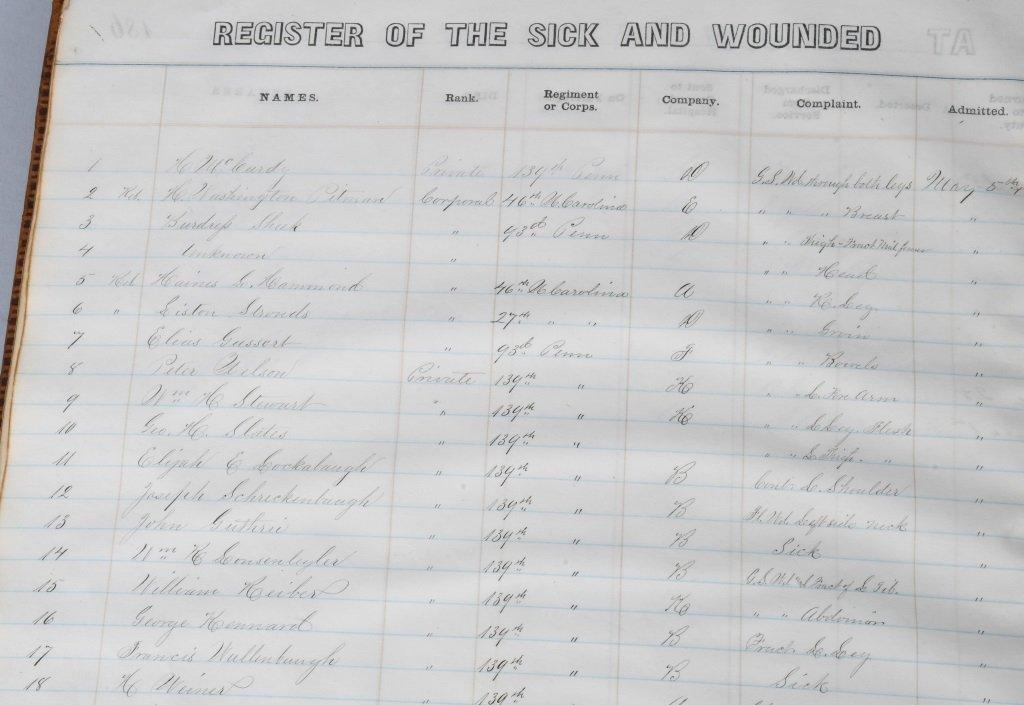 REGISTER OF THE SICK AND WOUNDED
NAMES. Rank. Regiment or Corps. Company. Complaint. Admitted.
1 H McCurdy Private 139th Penn D G.S. Wd through both legs May 5th
2 H. Washington Pitman Corporal 46th N Carolina E " " " Breast "
3 " 93d Penn D " " Thigh - Fract "
4 Unknown " " " Head "
5 Haines L. Hammond " 46th N Carolina A " " R. Leg "
6 " Liston " 27th " " D " " Groin "
7 Elias Gussert " 93d Penn F " " Bowels "
8 Peter Wilson Private 139th " K " " L. Fore Arm "
9 Wm H Stewart " 139th " K " " L Leg Flesh "
10 Geo. H. Slates " 139th " " " L Thigh " "
11 Elijah E Lockabaugh " 139th " B Cont. L. Shoulder "
12 Joseph Schreckenbaugh " 139th " B Fl. Wd Left side neck "
13 John Guthrie " 139th " B Sick "
14 Wm H " 139th " B G.S. Wd & Fract of L Tib. "
15 William Keiber " 139th " K " " Abdomen "
16 George Kennard " 139th " B Fract L. Leg "
17 Francis Wallenbaugh " 139th " B Sick "
18 H Weiner 139th